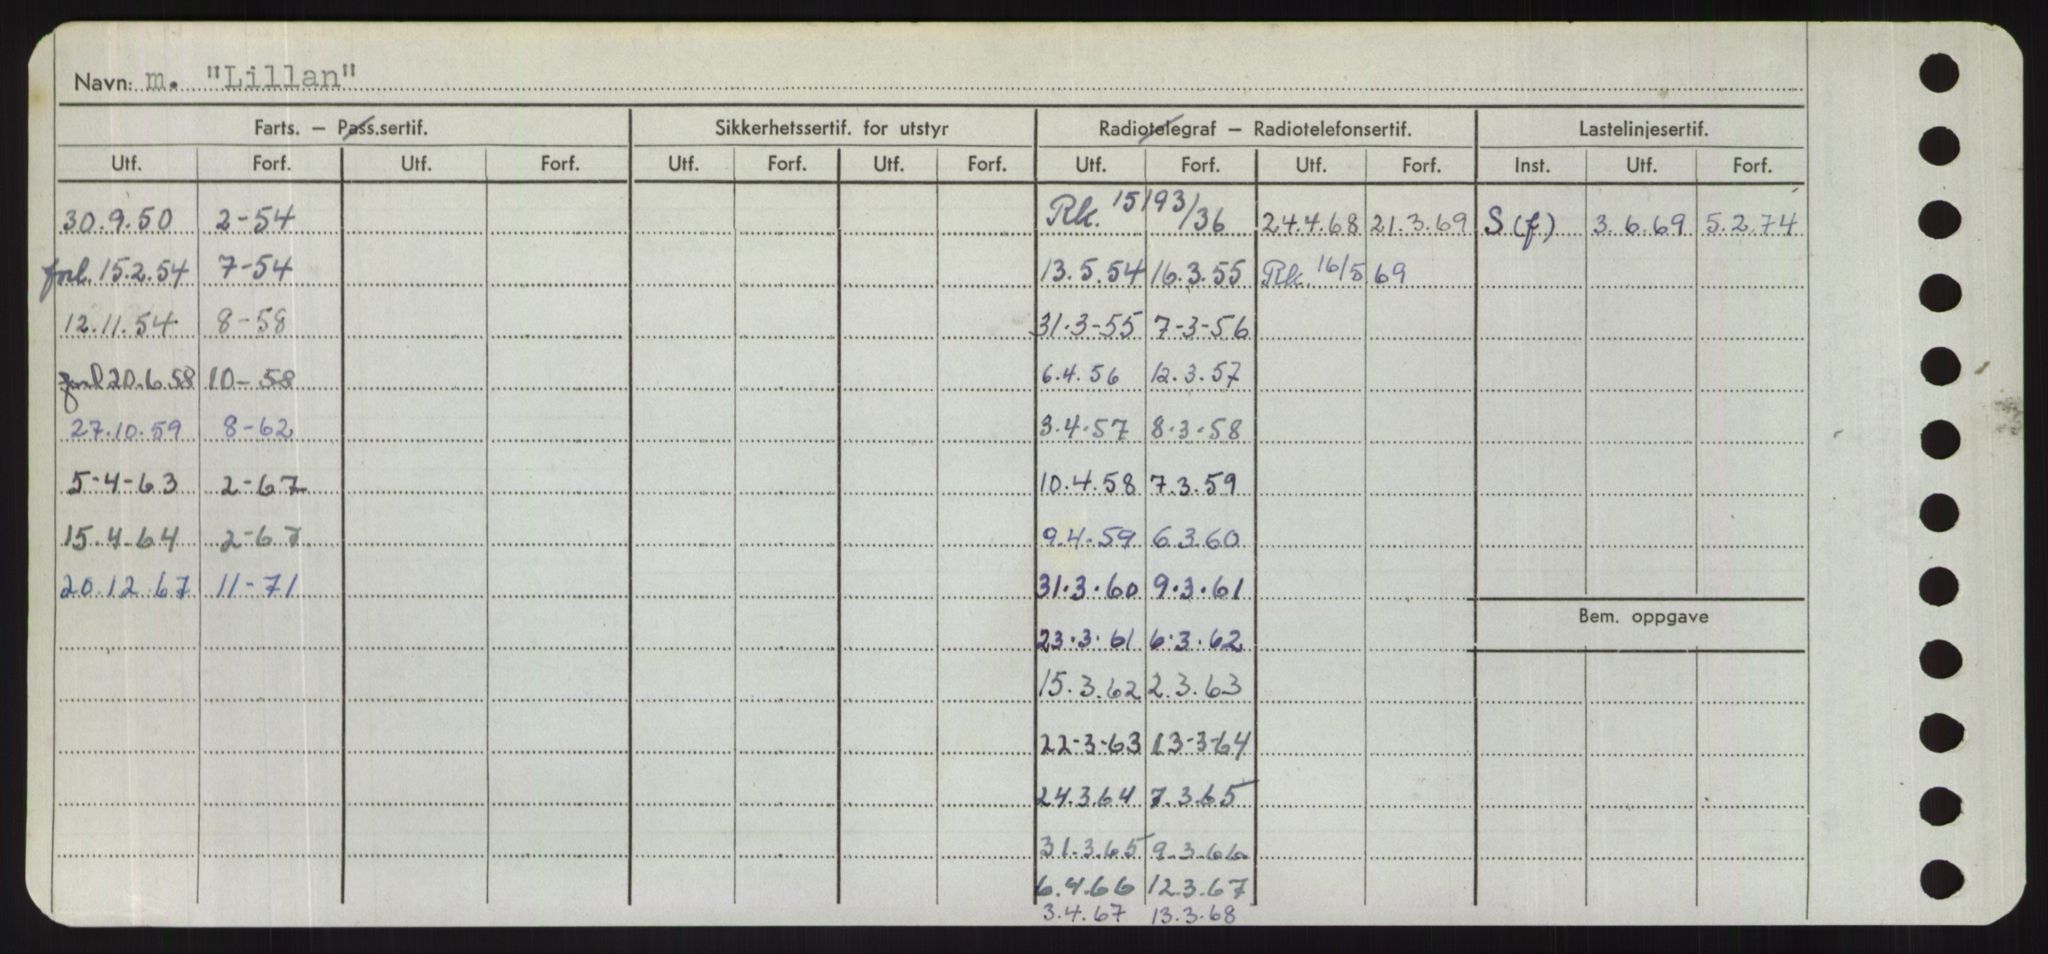 Navn: m. "Lillan"
Farts. – Pass.sertif. Sikkerhetssertif. for utstyr Radiotelegraf – Radiotelefonsertif. Lastelinjesertif.
Utf. Forf. Utf. Forf. Utf. Forf. Utf. Forf. Utf. Forf. Utf. Forf. Inst. Utf. Forf.
30.9.50 2-54 Rk. 15193/36 24.4.68 21.3.69 S(f) 3.6.69 5.2.74
forl. 15.2.54 7-54 13.5.54 16.3.55 Rk. 16/5.69
12.11.54 8-58 31.3-55 7-3-56
forl 20.6.58 10-58 6.4.56 12.3.57
27.10.59 8-62 3.4.57 8.3.58
5-4-63 2-67 10.4.58 7.3.59
15.4.64 2-67 9.4.59 6.3.60
20.12.67 11-71 31.3.60 9.3.61
Bem. oppgave
23.3.61 6.3.62
15.3.62 2.3.63
22-3-63 13-3-64
24.3.64 7.3.65
31.3.65 9.3.66
6.4.66 12.3.67
3.4.67 13.3.68